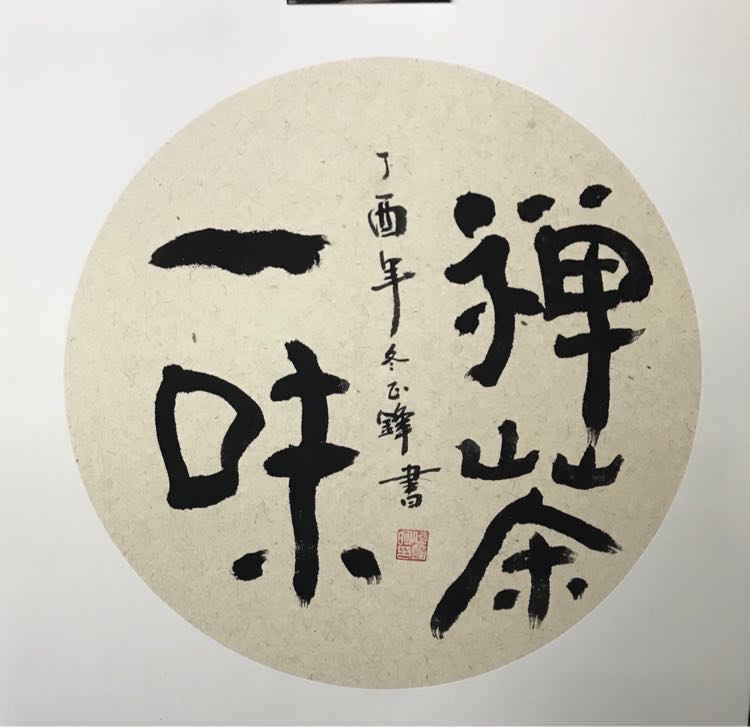 禅茶
丁酉年冬正鋒書
一味